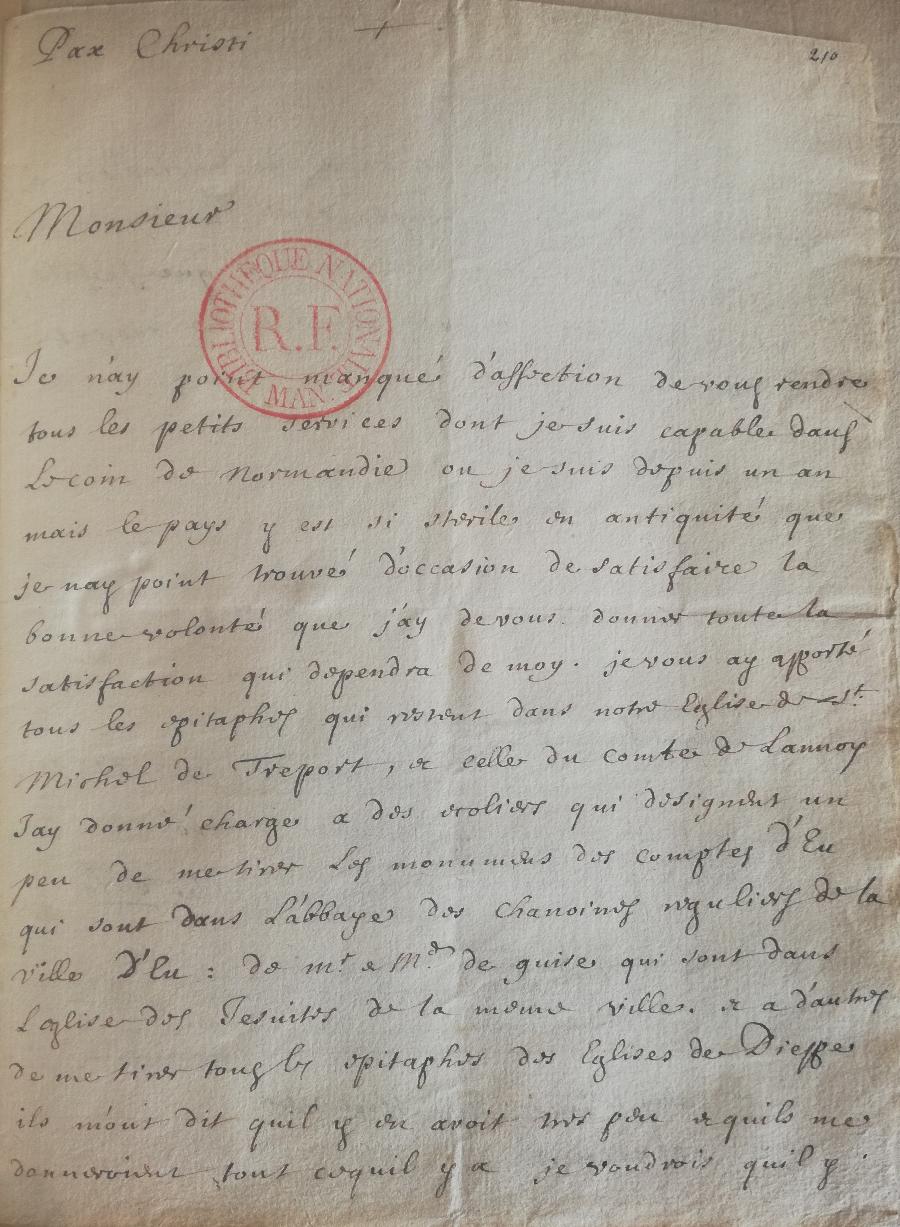 Pax Christi +
210
Monsieur
BIBLIOTHEQUE NATIONALE
R.F.
MAN.
Je n'ay point manqué d'affection de vous rendre
tous les petits services dont je suis capable dans
Le coin de Normandie ou je suis depuis un an
mais le pays y est si sterile en antiquité que
je nay point trouvé d'occasion de satisfaire la
bonne volonté que j'ay de vous donner toute la
satisfaction qui dependra de moy. je vous ay apporté
tous les epitaphes qui restent dans notre Eglise de St.
Michel de Treport, et celle du comte de Lannoy
Jay donné charge a des ecoliers qui designent un
peu de me tirer Les monumens des comptes d'Eu
qui sont dans L'abbaye des chanoines reguliers de la
ville D'Eu : de mr e Md de guise qui sont dans
Leglise des Jesuites de la meme ville. et a d'autres
de me tirer tous les epitaphes des Eglises de Dieppe
ils m'ont dit quil y en avoit tres peu e quils me
donneroient tout cequil y a je voudrois quil y